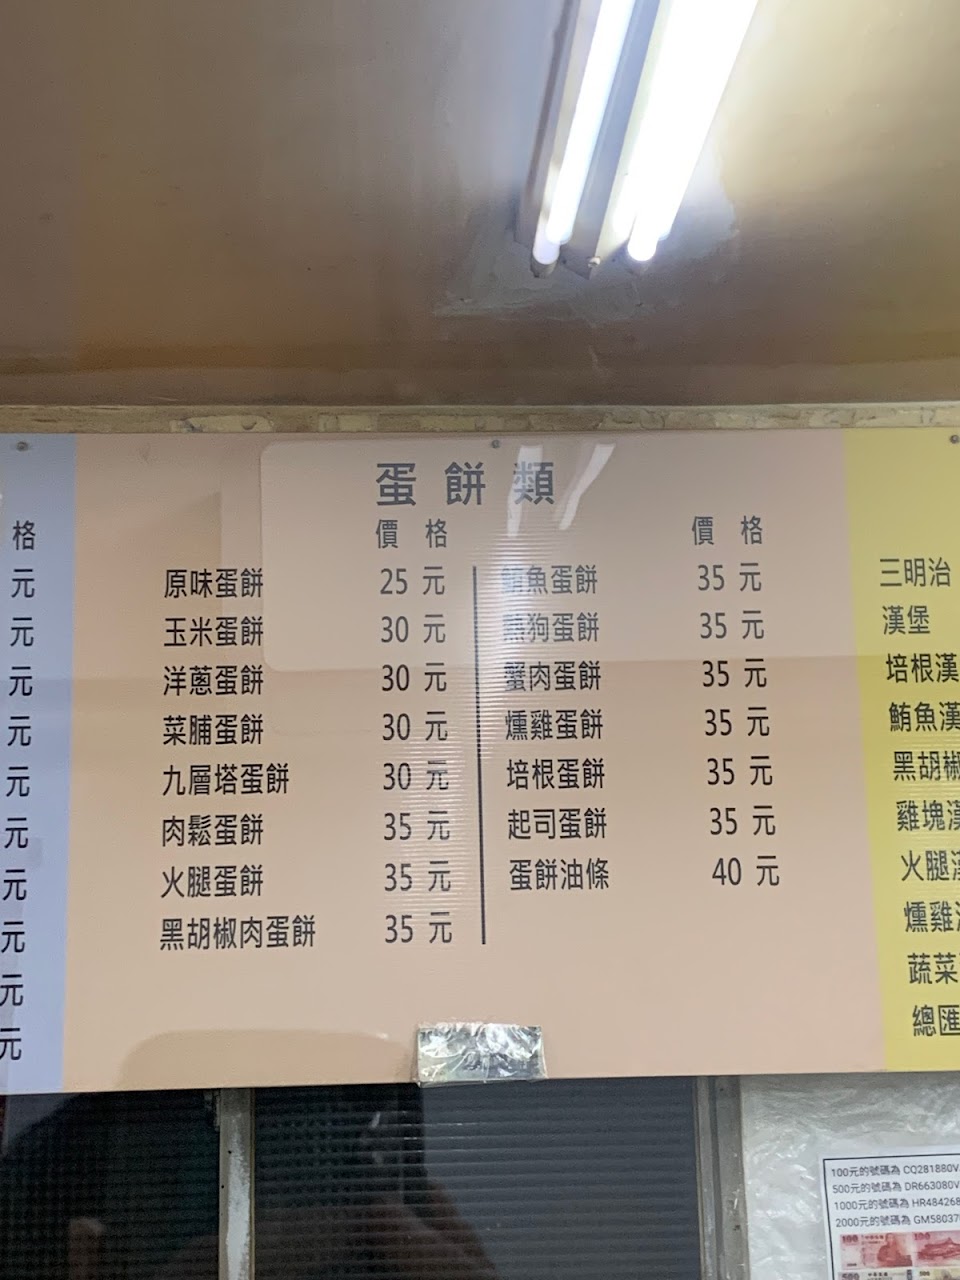 格
元
元
元
元
元
元
元
元
元
元
元
蛋餅類
價 格
原味蛋餅 25 元
玉米蛋餅 30 元
洋蔥蛋餅 30 元
菜脯蛋餅 30 元
九層塔蛋餅 30 元
肉鬆蛋餅 35 元
火腿蛋餅 35 元
黑胡椒肉蛋餅 35 元
價 格
鮪魚蛋餅 35 元
熱狗蛋餅 35 元
蟹肉蛋餅 35 元
燻雞蛋餅 35 元
培根蛋餅 35 元
起司蛋餅 35 元
蛋餅油條 40 元
三明治
漢堡
培根漢
鮪魚漢
黑胡椒
雞塊漢
火腿漢
燻雞漢
蔬菜
總匯
100元的號碼為 CQ281880V
500元的號碼為 DR663080V
1000元的號碼為 HR484268
2000元的號碼為 GM58037
100
100
500
500